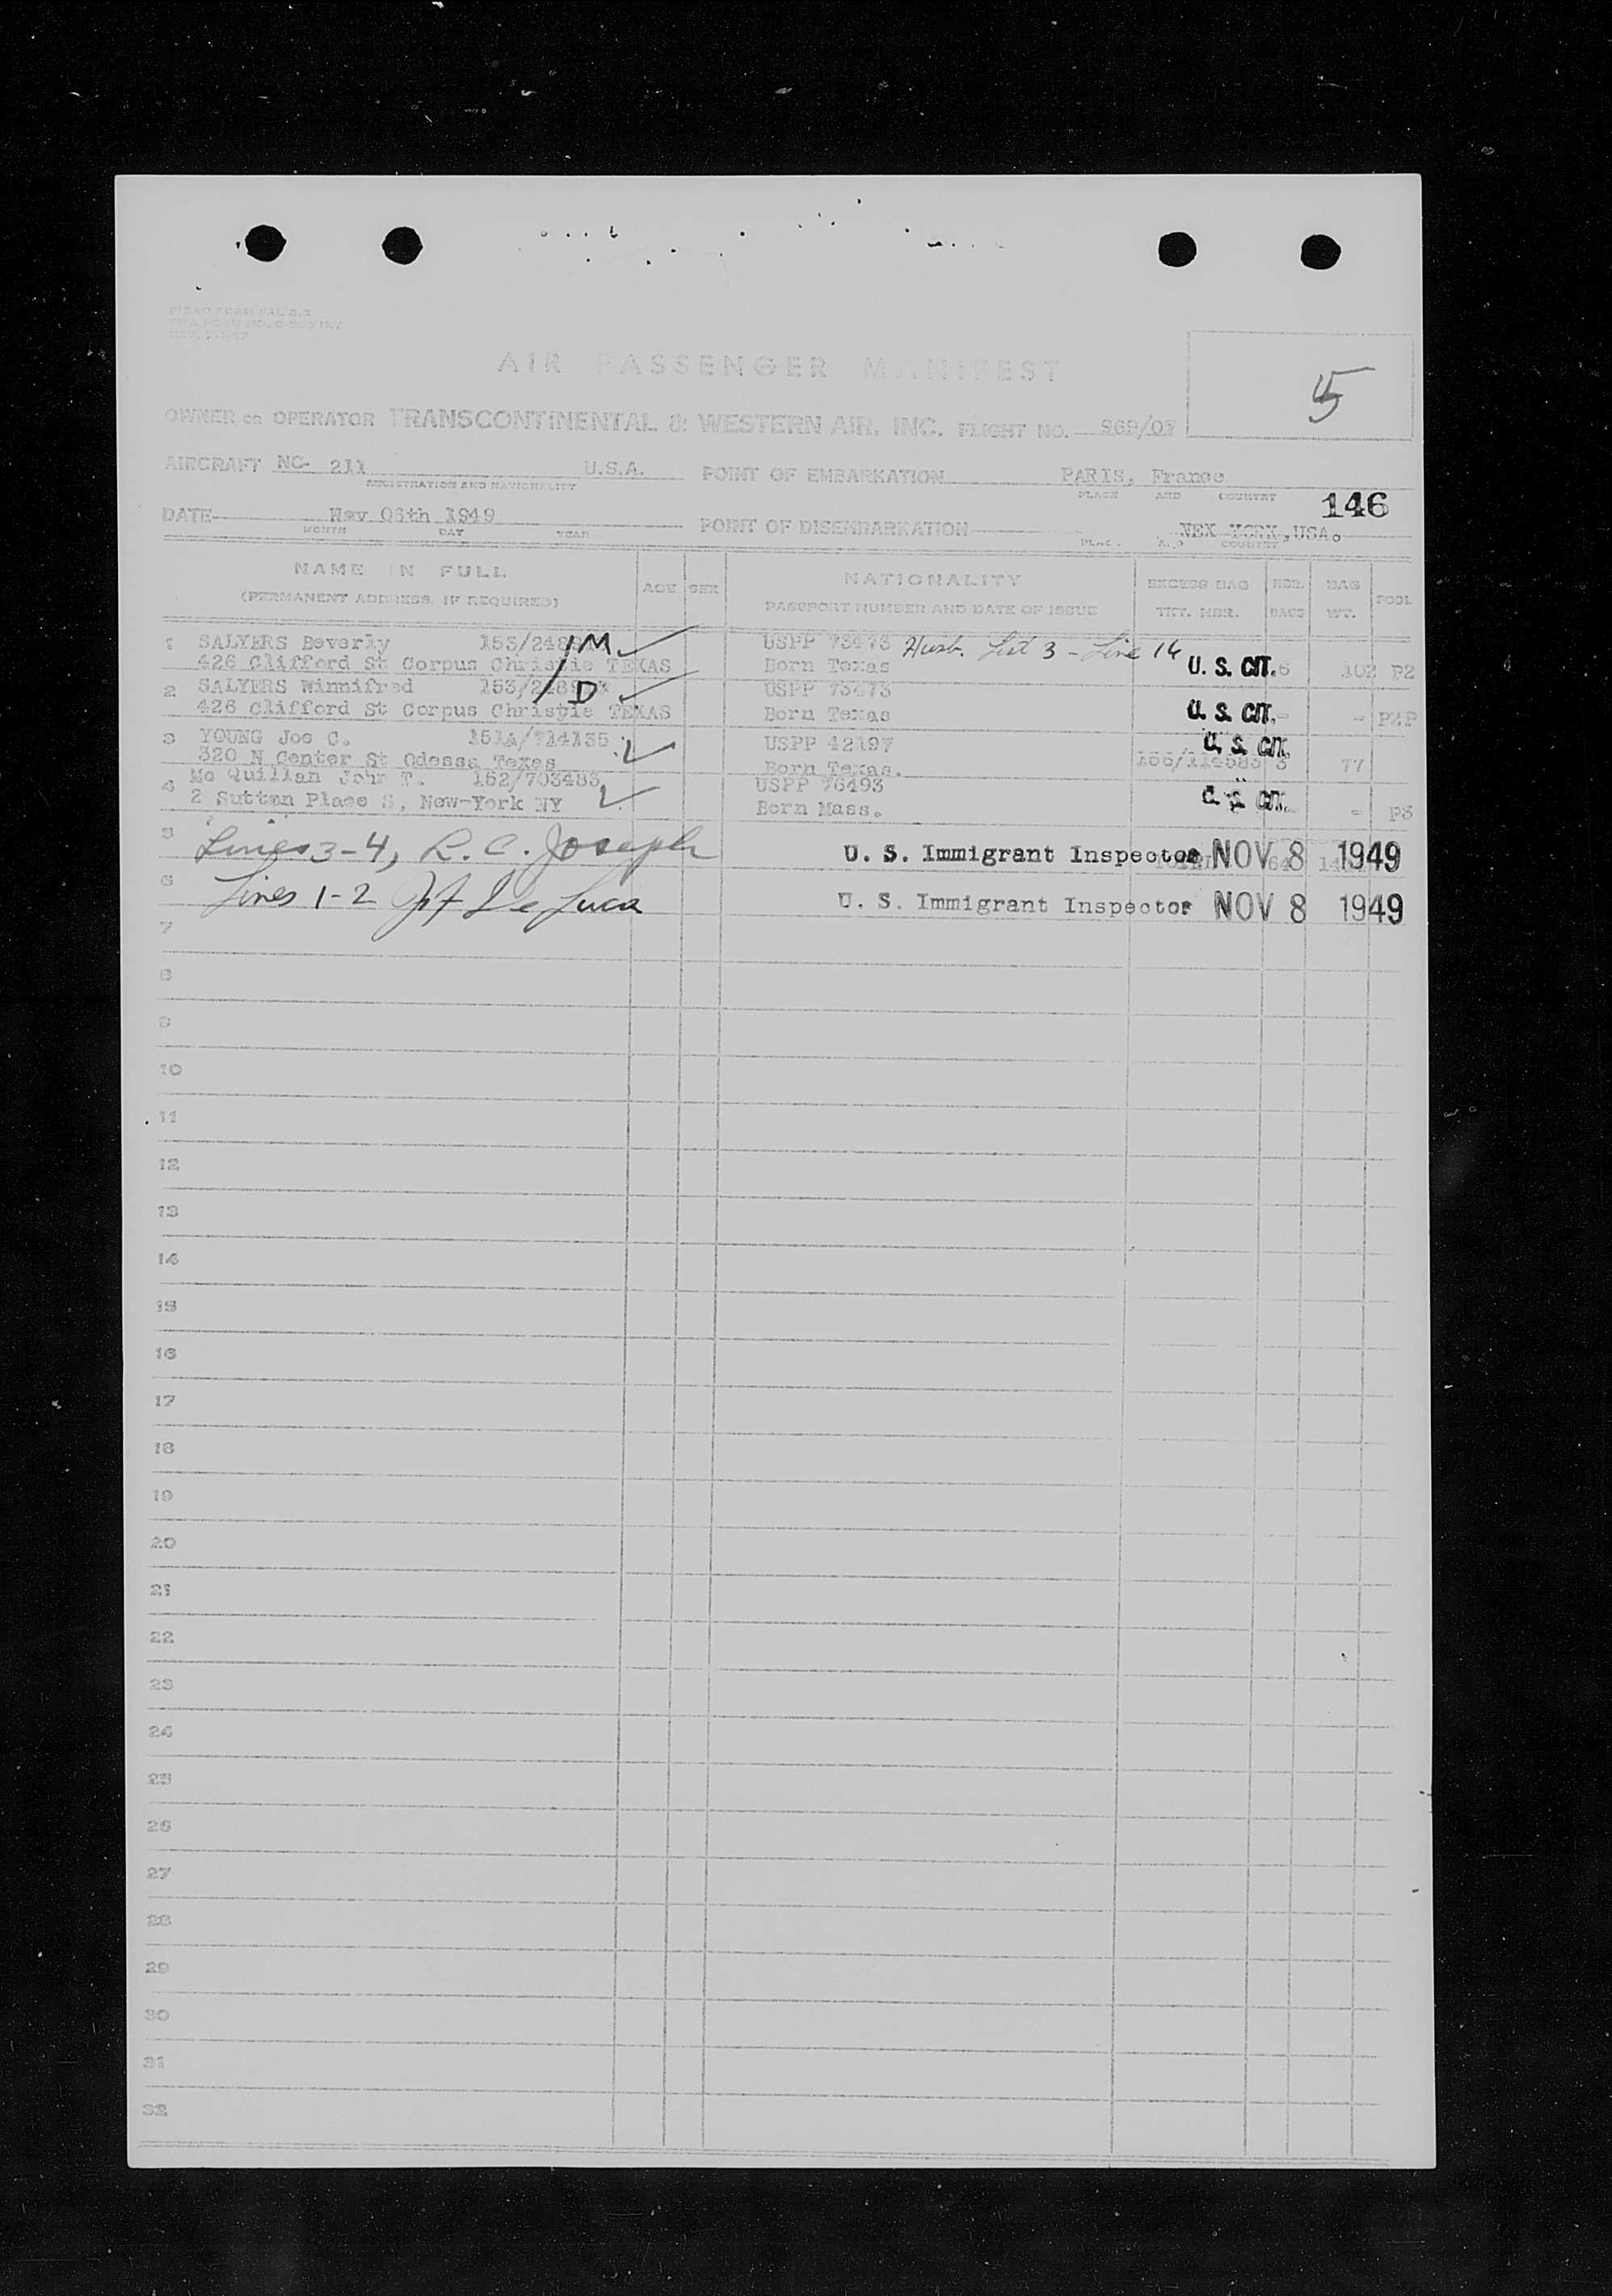 5
AIR PASSENGER MANIFEST
OWNER OR OPERATOR TRANSCONTINENTAL & WESTERN AIR, INC. FLIGHT NO. 969/07
AIRCRAFT NC- 211 U.S.A. POINT OF EMBARKATION PARIS, France
REGISTRATION AND NATIONALITY PLACE AND COUNTRY
146
DATE Nov 06th 1949 POINT OF DISEMBARKATION NEX YORK,USA.
MONTH DAY YEAR PLACE AND COUNTRY
NAME IN FULL AGE SEX NATIONALITY EXCESS BAG NBR. BAG POOL
(PERMANENT ADDRESS, IF REQUIRED) PASSPORT NUMBER AND DATE OF ISSUE TKT. NBR. BAGS WT.
1 SALYERS Beverly /M USPP 73473 Husb. List 3 - Line 14
426 Clifford St Corpus Christie TEXAS Born Texas U. S. CIT. 6 102 P2
2 SALYERS Winnifred /D USPP 73473
426 Clifford St Corpus Christie TEXAS Born Texas U. S. CIT. - -
3 YOUNG Joe C. 151A/714135 USPP 42197 U. S. CIT.
320 N Center St Odessa Texas Born Texas. 3 77
4 Mc Quillan John T. 152/703483 USPP 76493
2 Sutton Place S, New-York NY Born Mass. U. S. CIT. - P3
5 Lines 3-4, R. C. Joseph U. S. Immigrant Inspector NOV 8 1949
6 Lines 1-2 De Luca U. S. Immigrant Inspector NOV 8 1949
7
8
9
10
11
12
13
14
15
16
17
18
19
20
21
22
23
24
25
26
27
28
29
30
31
32